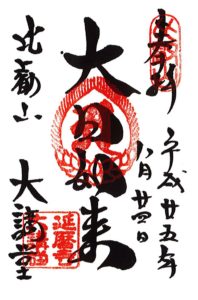 奉拝
平成廿五年
八月廿四日
大日如来
比叡山
大講堂
延暦寺